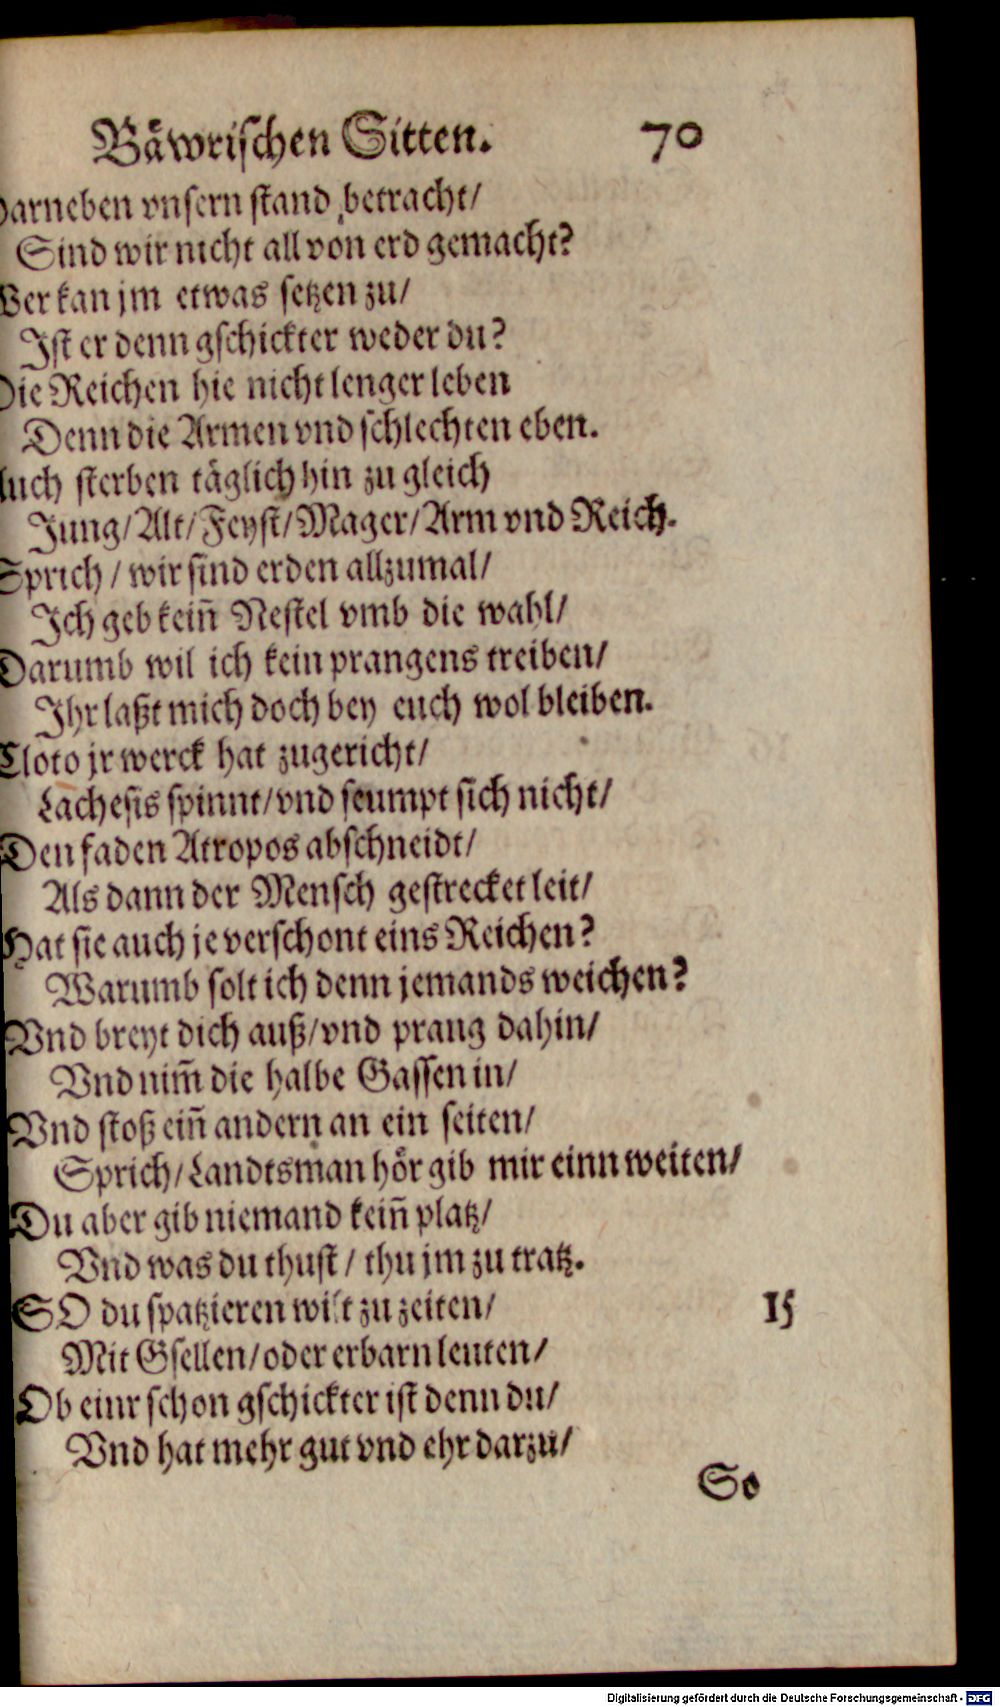 Bäwrischen Sitten. 70
Darneben vnsern stand betracht/
Sind wir nicht all von erd gemacht?
Wer kan jm etwas setzen zu/
Ist er denn gschickter weder du?
Die Reichen hie nicht lenger leben
Denn die Armen vnd schlechten eben.
Auch sterben täglich hin zu gleich
Jung/ Alt/ Feyst/ Mager/ Arm vnd Reich.
Sprich / wir sind erden allzumal/
Ich geb keiñ Nestel vmb die wahl/
Darumb wil ich kein prangens treiben/
Ihr laßt mich doch bey euch wol bleiben.
Cloto jr werck hat zugericht/
Lachesis spinnt/ vnd seumpt sich nicht/
Den faden Atropos abschneidt/
Als dann der Mensch gestrecket leit/
Hat sie auch je verschont eins Reichen?
Warumb solt ich denn jemands weichen?
Vnd breyt dich auß/ vnd prang dahin/
Vnd nim̃ die halbe Gassen in/
Vnd stoß eiñ andern an ein seiten/
Sprich/ Landtsman hör gib mir einn weiten/
Du aber gib niemand keiñ platz/
Vnd was du thust / thu jm zu tratz.
SO du spatzieren wilt zu zeiten/ 15
Mit Gsellen/ oder erbarn leuten/
Ob einr schon gschickter ist denn du/
Vnd hat mehr gut vnd ehr darzu/
So
Digitalisierung gefördert durch die Deutsche Forschungsgemeinschaft - DFG